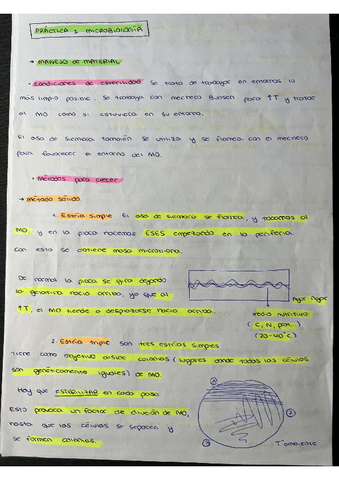 PRÁCTICA 1 MICROBIOLOGÍA
→ MANEJO DE MATERIAL
• Condiciones de esterilidad Se trata de trabajar en entornos lo
más limpio posible. Se trabaja con mechero Bunsen para ↑T y tratar
al MO como si estuviera en su entorno.
El asa de siembra también se utiliza y se flamea con el mechero
para favorecer el entorno del MO.
• Métodos para crecer
→ Método sólido
1. Estría simple El asa de siembra se flamea, y tocamos al
MO, y en la placa hacemos ESES empezando en la periferia.
Con esto se obtiene masa microbiana.
De forma la placa se gira dejando
la gelatina hacia arriba, ya que al
↑T, el MO tiende a desplazarse hacia arriba.
Agar Agar
medio nutritivo
(C, N, pan...)
(20-40°C)
2. Estría triple son tres estrías simples
Tiene como objetivo aislar colonias (lugares donde todas las células
son genéticamente iguales) de MO.
Hay que ESTABILIZAR en cada paso
Esto provoca un factor de dilución de MO,
hasta que las células se separen y
se formen colonias.